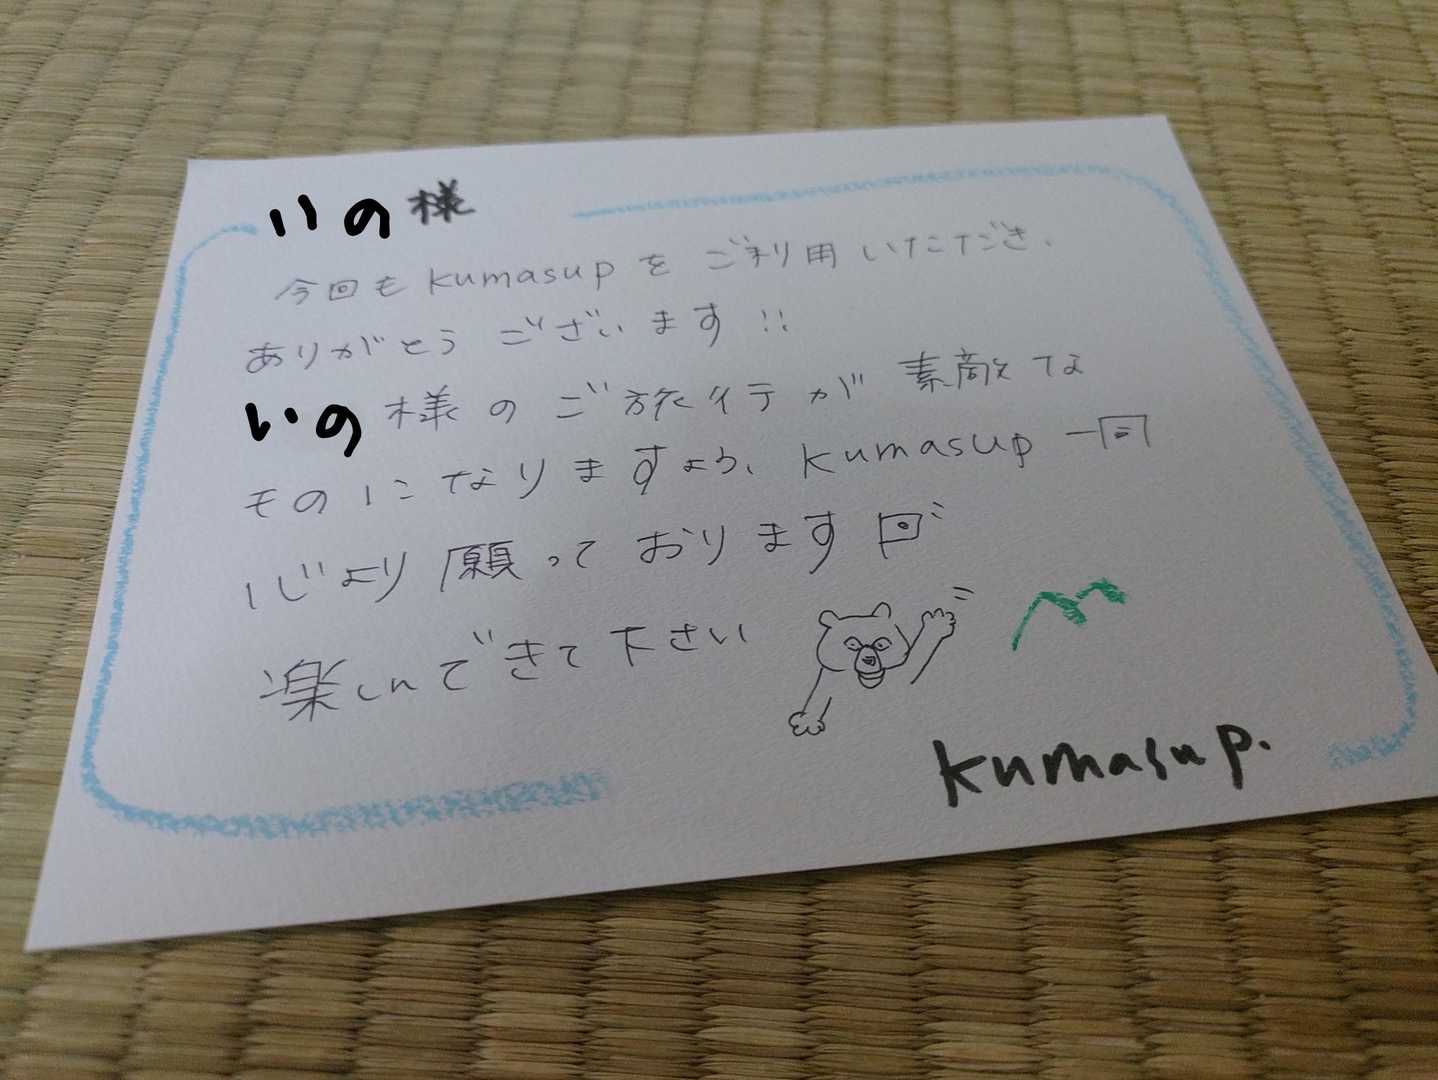 いの様
今回もkumasupをご利用いただき、
ありがとうございます!!
いの様のご旅行が素敵な
ものになりますよう、kumasup一同
心より願っております
楽しんできて下さい
kumasup.